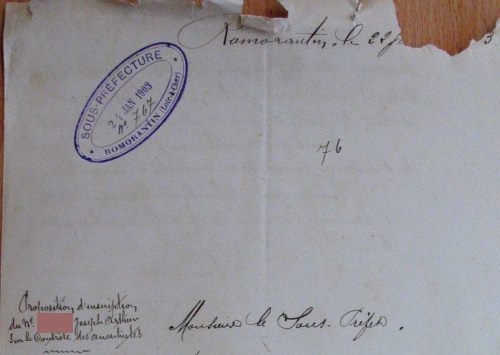 Romorantin, le 22 3
SOUS-PRÉFECTURE
24 JAN 1903
n° 767
ROMORANTIN (Loir-&-Cher)
76
Proposition d'inscription
du Né Joseph Arthur
sur le Contrôle des anarchistes
Monsieur le Sous-Préfet,